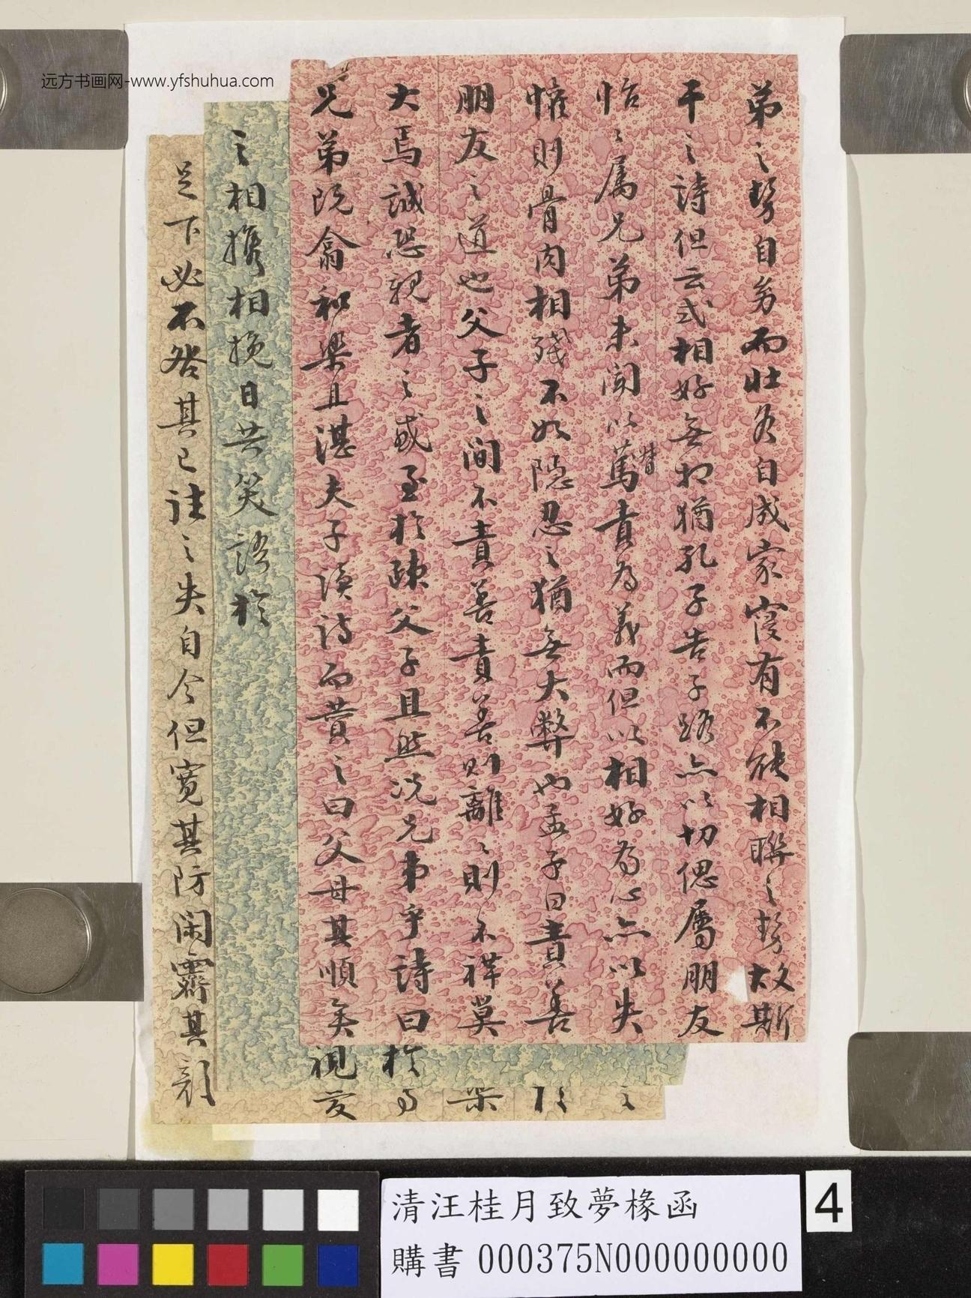 弟之勢自分而壯各自成家寖有不能相聯之勢故斯
干之詩但云式相好無相猶孔子告子路亦以切偲屬朋友
怡怡屬兄弟未聞以督責為義而但以相好為心亦以失
懽則骨肉相殘不如隱忍之猶無大弊也孟子曰責善
朋友之道也父子之間不責善責善則離離則不祥莫
大焉誠恐親者之或至於疎父子且然況兄弟乎詩曰
兄弟既翕和樂且湛夫子讀詩而贊之曰父母其順矣
之相攜相挽日共笑語於
足下必不咎其已往之失自今但寬其防閑霽其顏
之
於
樂
於
視哀
远方书画网-www.yfshuhua.com
清汪桂月致夢椽函
購書 000375N000000000
4